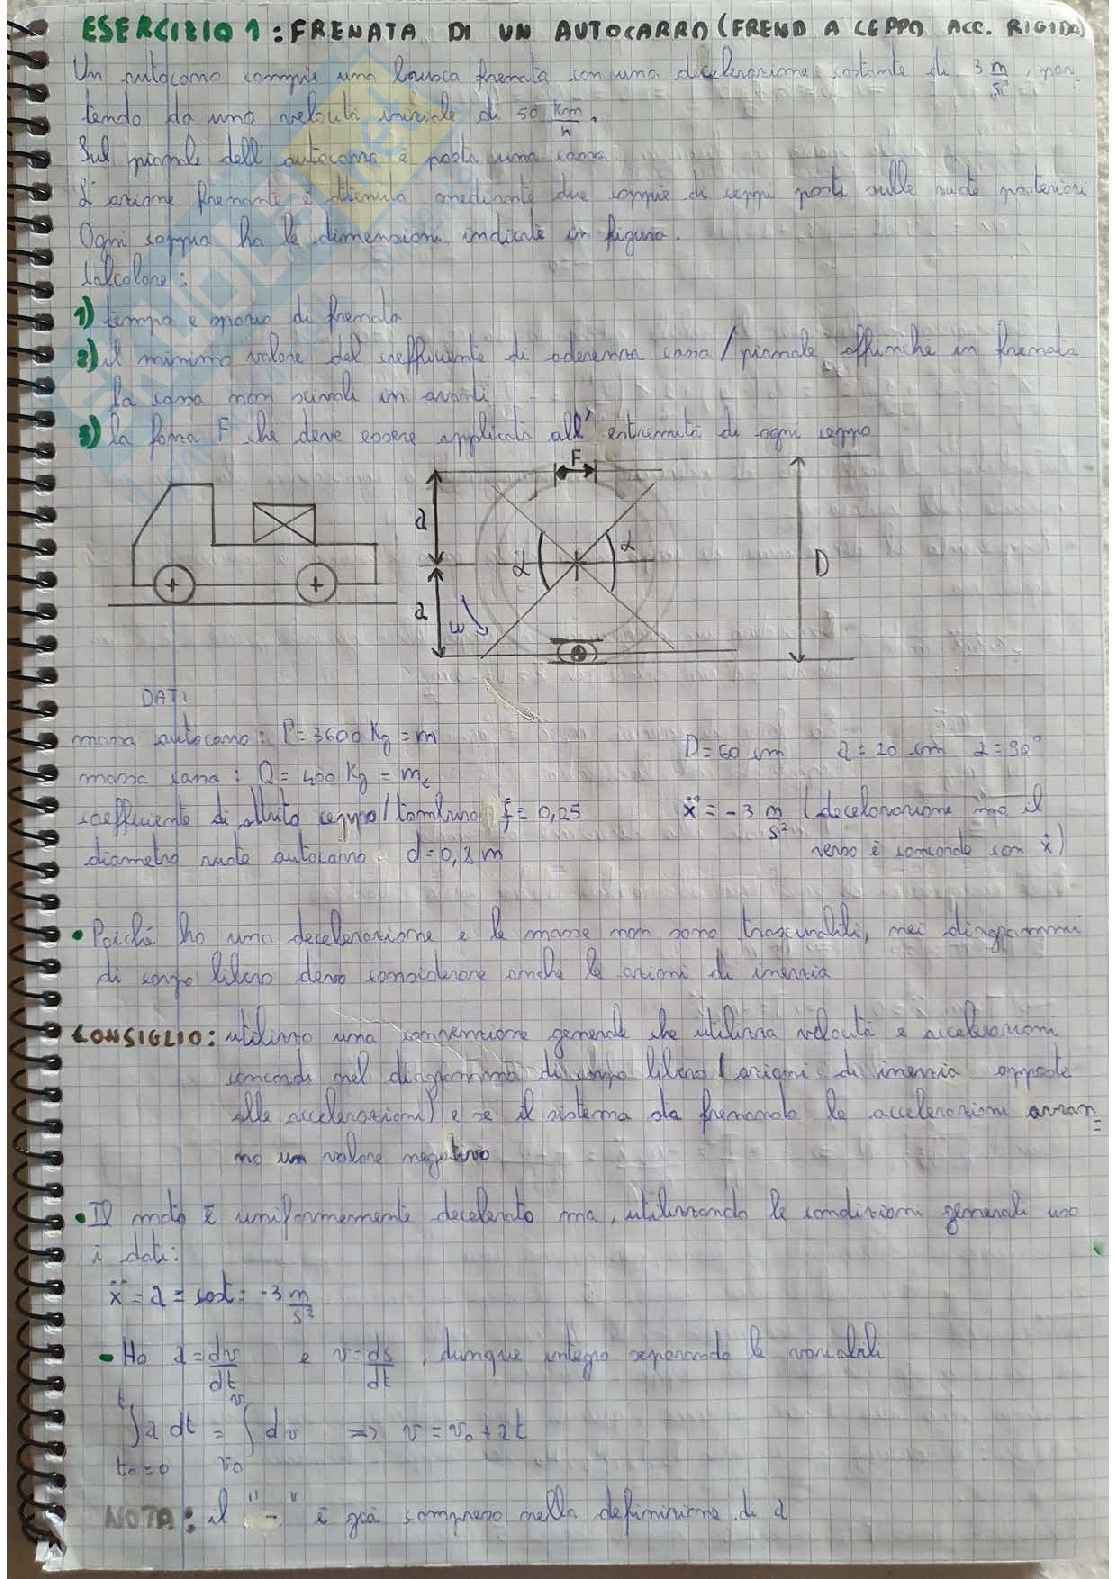 ESERCIZIO 1: FRENATA DI UN AUTOCARRO (FRENO A CEPPO ACC. RIGIDO)
Un autocarro compie una brusca frenata con una decelerazione costante di 3 m/s², par-
tendo da una velocità iniziale di 50 Km/h.
Sul pianale dell'autocarro è posta una cassa
L'azione frenante è ottenuta mediante due coppie di ceppi posti sulle ruote posteriori
Ogni ceppo ha le dimensioni indicate in figura.
Calcolare:
1) tempo e spazio di frenata
2) il minimo valore del coefficiente di aderenza cassa/pianale affinché in frenata
la cassa non scivoli in avanti
3) la forza F che deve essere applicata all'estremità di ogni ceppo
F
a
α
α
D
a
ω
DATI
massa autocarro: P=3600 Kg = m
D=60 cm a=20 cm α=90°
massa cassa: Q=400 Kg = mc
coefficiente di attrito ceppo/tamburo f=0,25
ẍ=-3 m/s² (decelerazione ma il
diametro ruote autocarro d=0,8 m
verso è concorde con ẋ)
• Poiché ho una decelerazione e le masse non sono trascurabili, nei diagrammi
di corpo libero devo considerare anche le azioni di inerzia
CONSIGLIO: utilizzo una convenzione generale che utilizza velocità e accelerazioni
concordi nel diagramma di corpo libero (azioni di inerzia opposte
alle accelerazioni) e se il sistema sta frenando le accelerazioni avran=
no un valore negativo
• Il moto è uniformemente decelerato ma, utilizzando le condizioni generali uso
i dati:
ẍ=a=cost=-3 m/s²
- Ho a=dv/dt e v=ds/dt, dunque integro separando le variabili
∫a dt = ∫dv => v=v₀+at
t₀=0 v₀
NOTA: il "-" è già compreso nella definizione di a